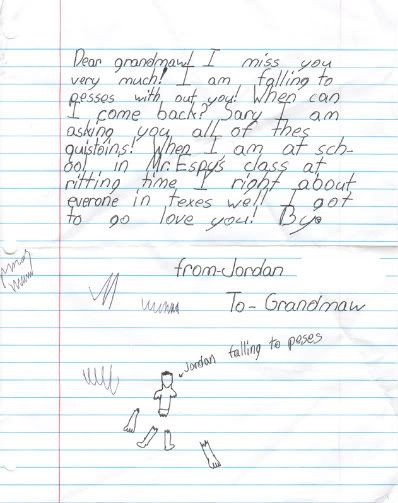 Dear grandmaw! I miss you
very much! I am falling to
pesses with out you! When can
I come back? Sary I am
asking you all of thes
quistoins! When I am at sch-
ool in Mr. Espy's class at
ritting time I right about
everone in Texes well I got
to go love you! By.
from-Jordan
To-Grandmaw
Jordan falling to peses